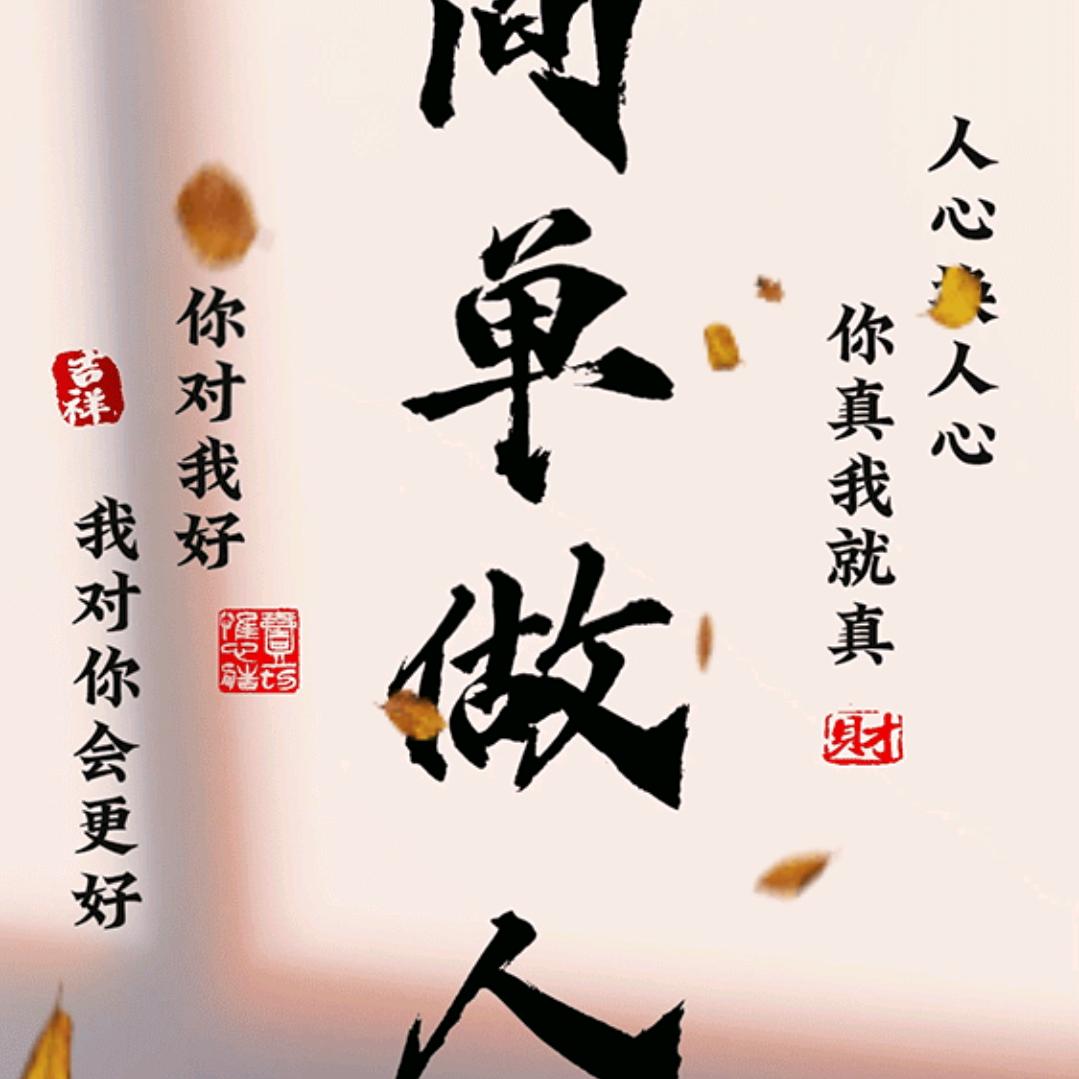 人心换人心
你真我就真
財
简单做人
你对我好
我对你会更好
吉祥